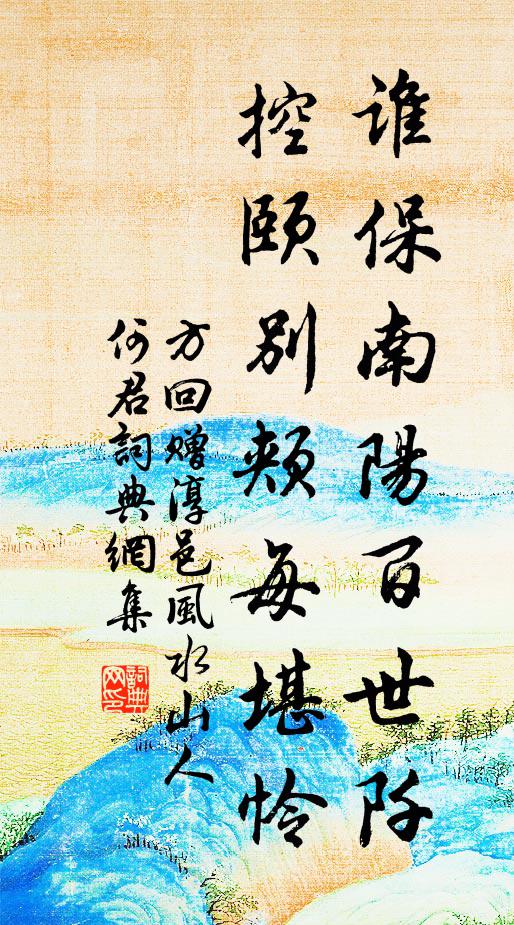 誰保南陽百世阡
控頤別頰每堪憐
方回贈淳邑風水山人
何君詞典網集
詞典網印